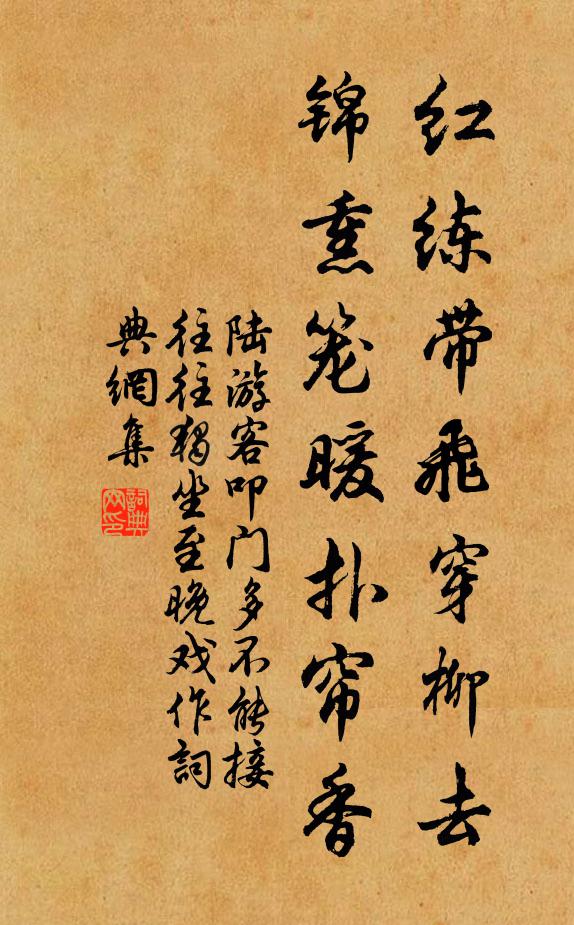 红练带飞穿柳去
锦熏笼暖扑帘香
陆游客叩门多不能接
往往独坐至晚戏作詞
典網集
詞典
网印